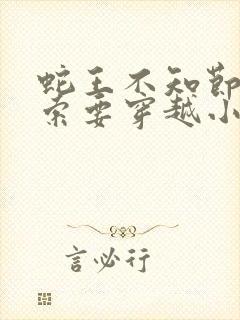 蛇王不知节
索要穿越小
言必行